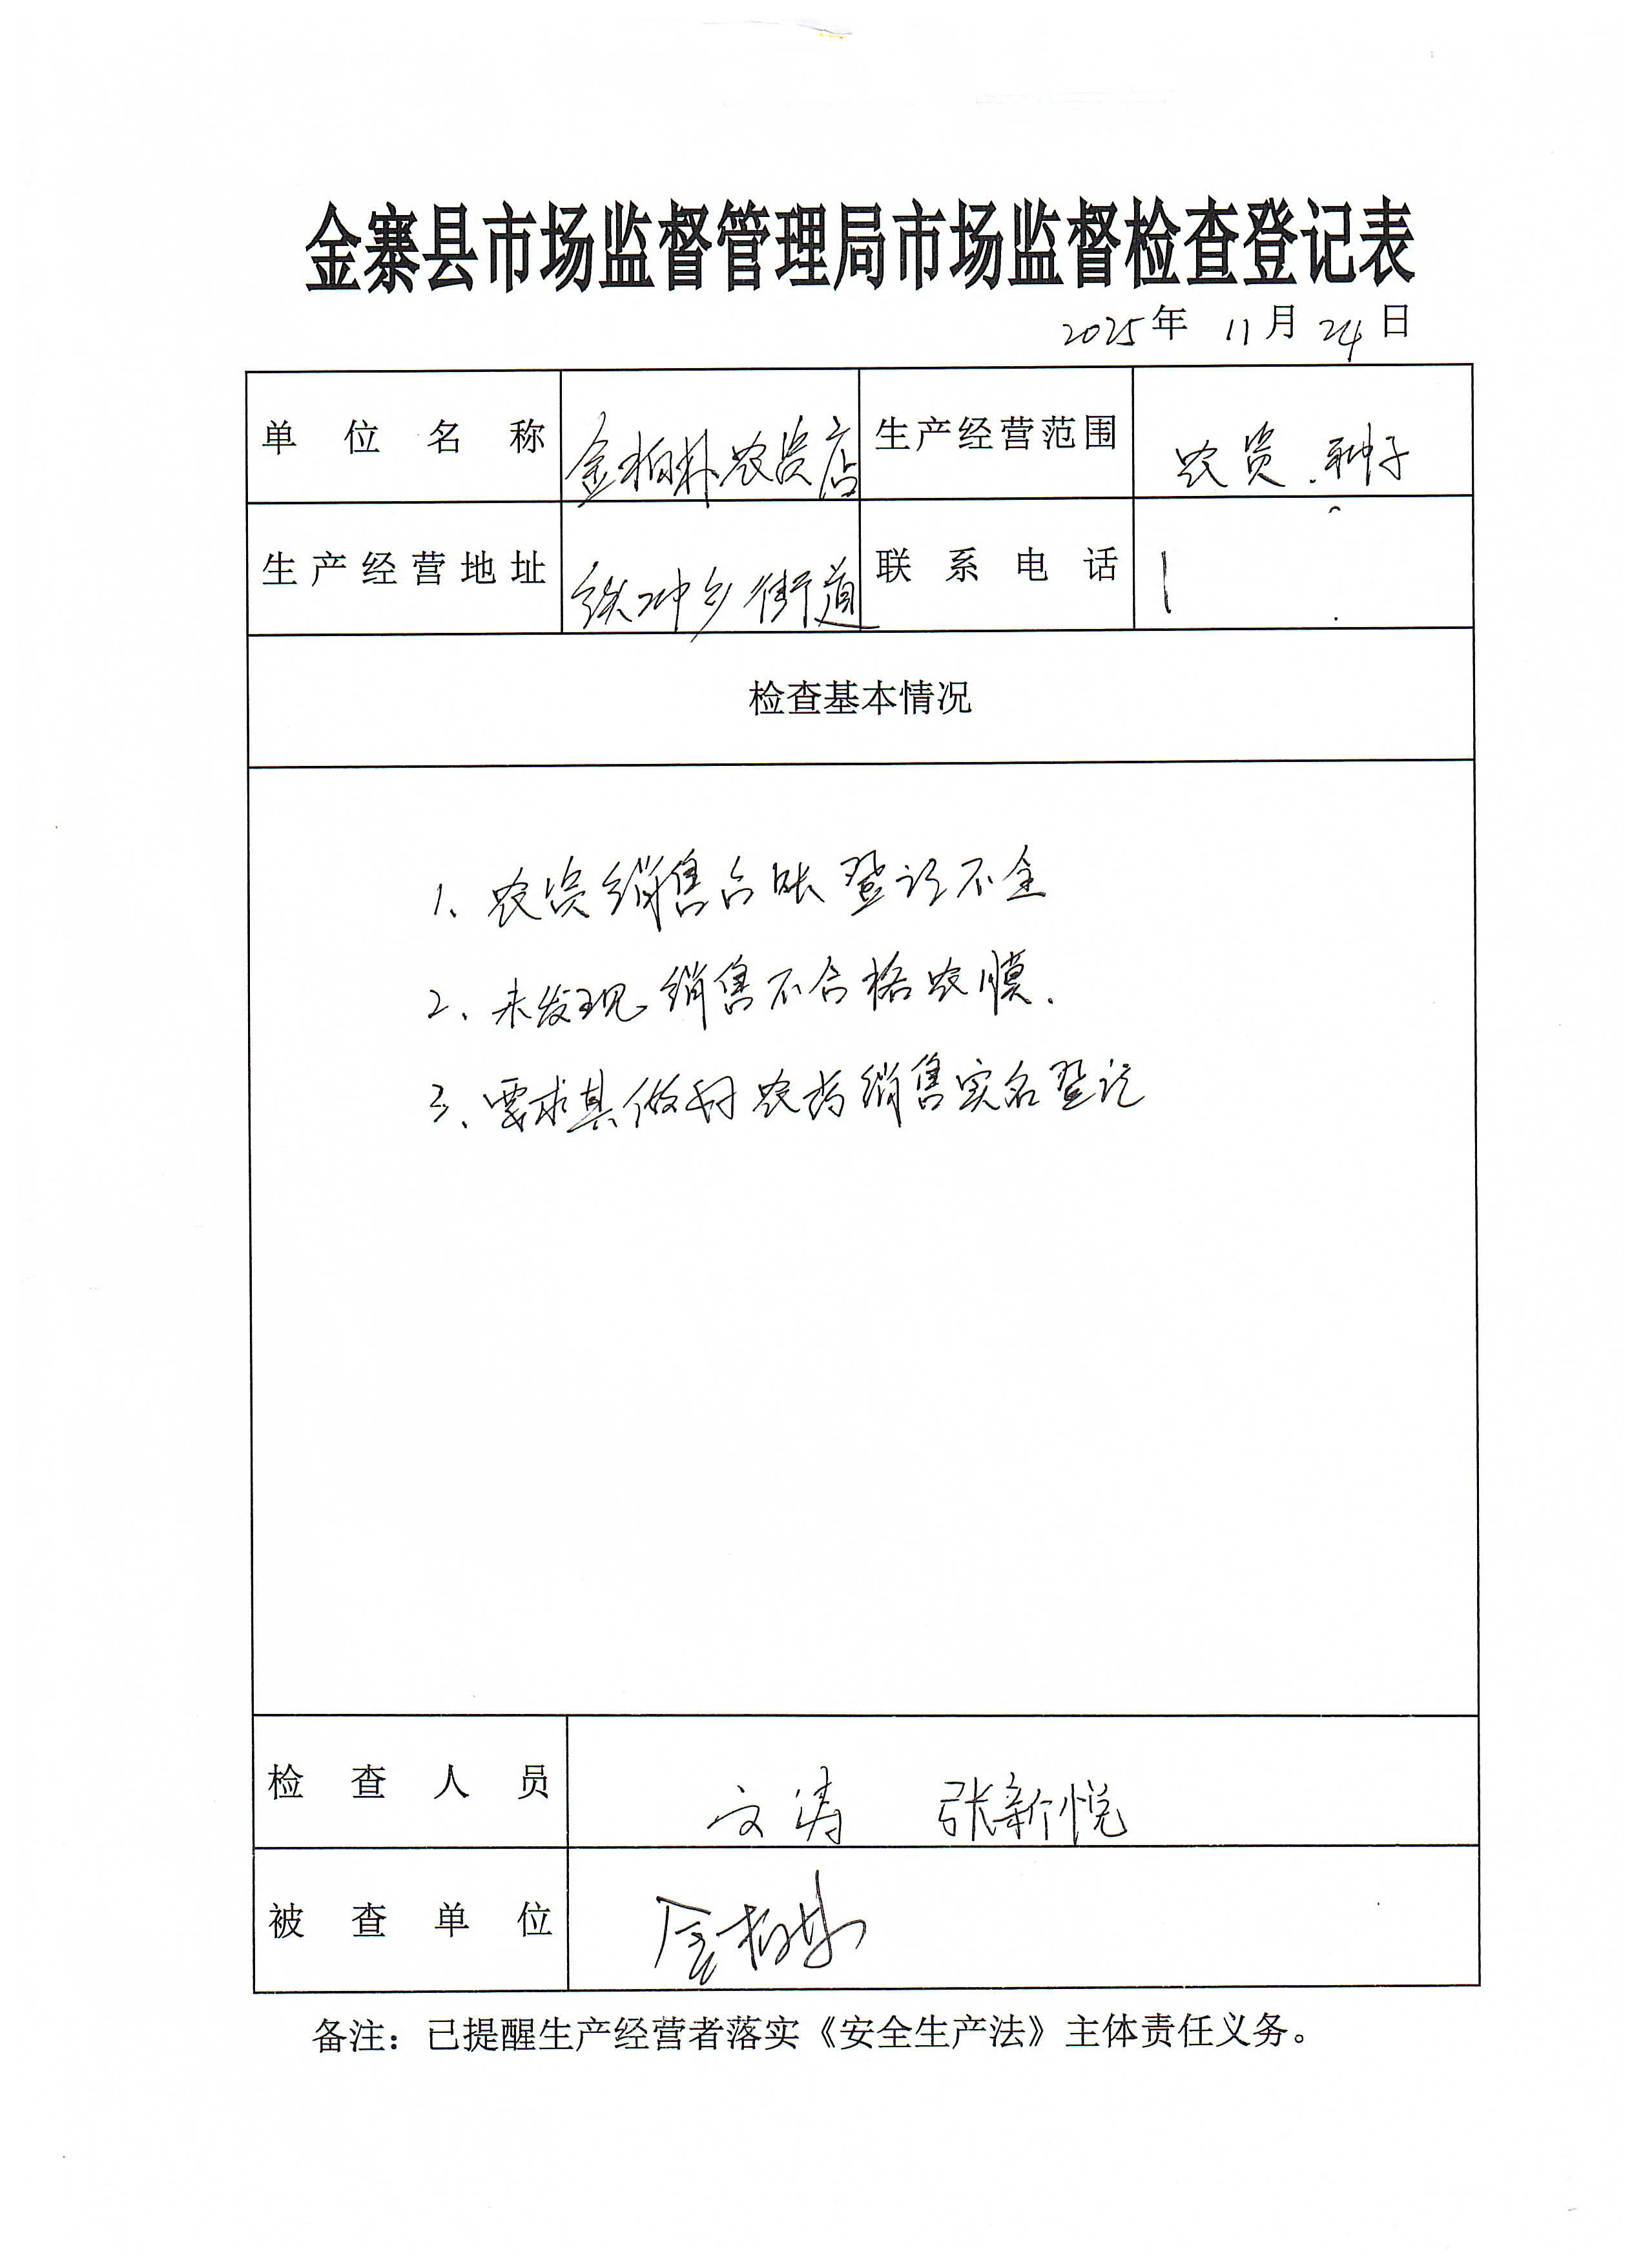 金寨县市场监督管理局市场监督检查登记表
2025年 11月24日
单位名称 金柏林农资店 生产经营范围 农资、种子
生产经营地址 铁冲乡街道 联系电话 1
检查基本情况
1、农资销售台帐登记不全
2、未发现销售不合格农膜.
3、要求其做好农药销售实名登记
检查人员 文涛 张新悦
被查单位 金柏林
备注：已提醒生产经营者落实《安全生产法》主体责任义务。